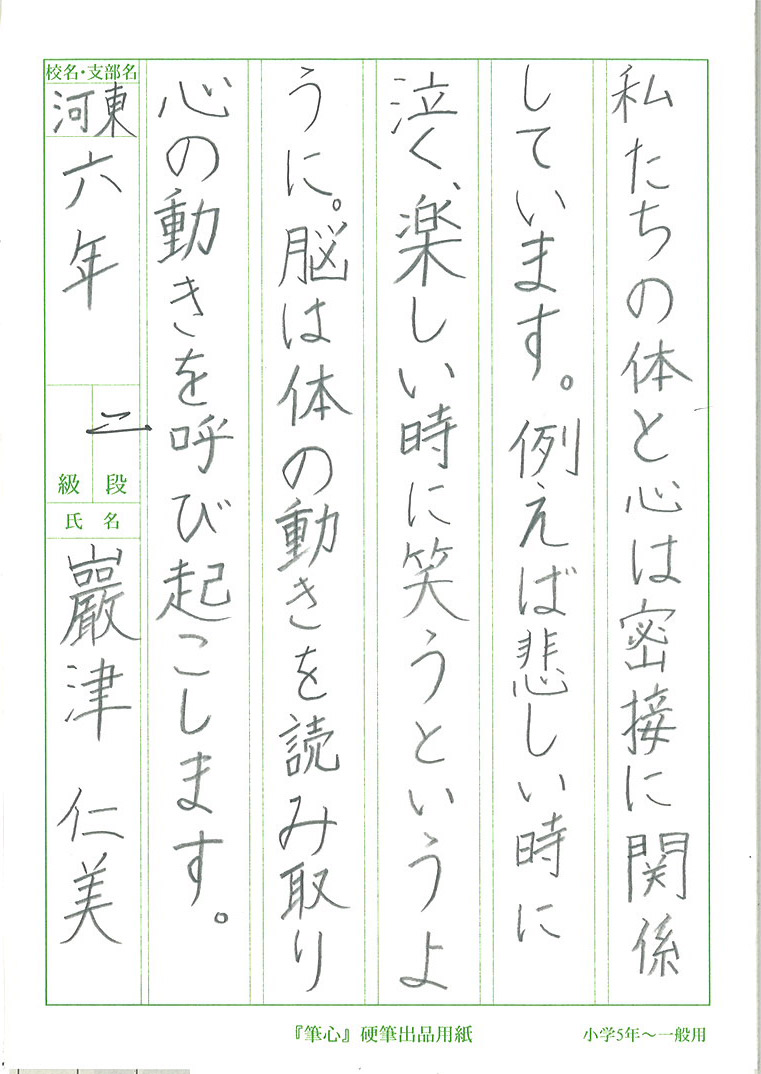 私たちの体と心は密接に関係
しています。例えば悲しい時に
泣く、楽しい時に笑うというよ
うに。脳は体の動きを読み取り
心の動きを呼び起こします。
校名・支部名
河東
六年
二
級 段
氏名
巖津 仁美
『筆心』硬筆出品用紙
小学5年〜一般用